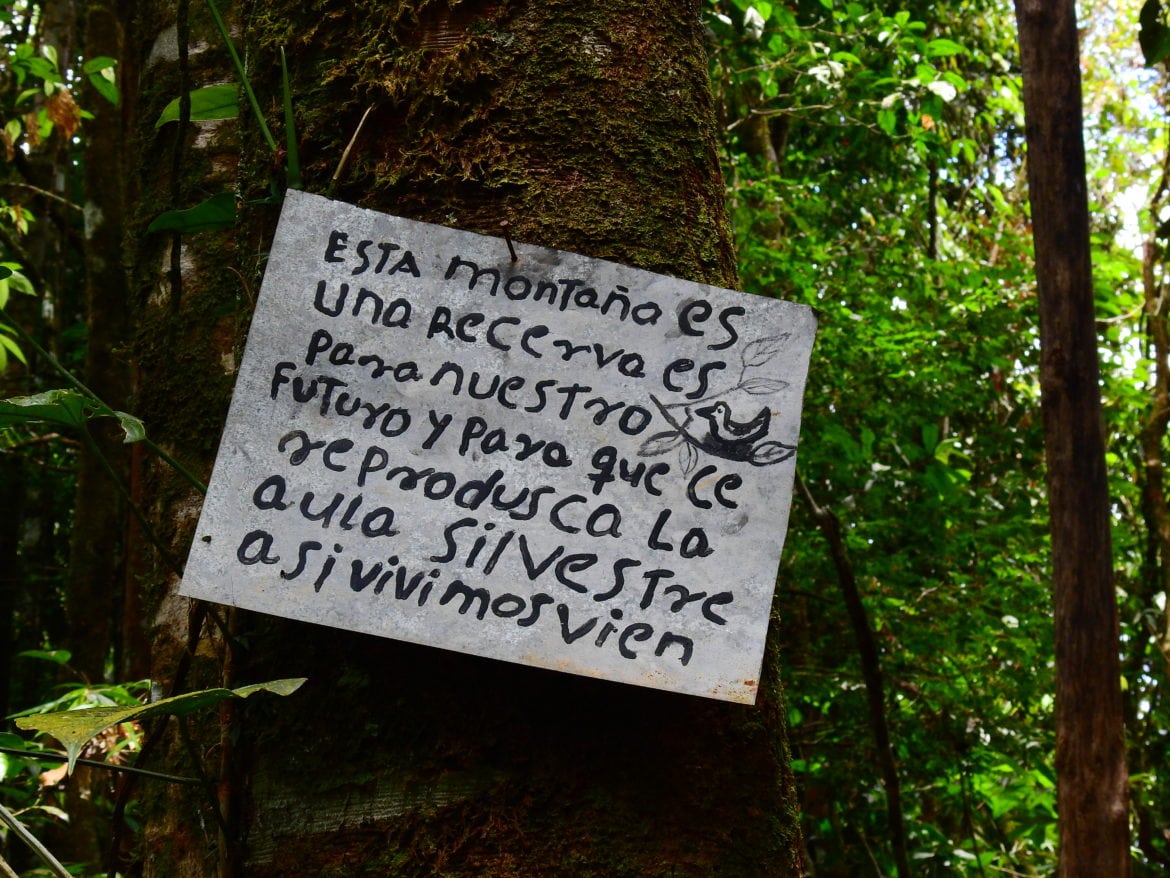 ESTA montaña es
una Recerva es
para nuestro
Futuro y para que ce
reprodusca La
aula silvestre
asi vivimos vien